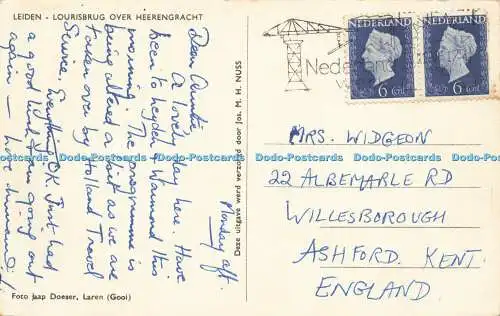 LEIDEN - LOURISBRUG OVER HEERENGRACHT
Monday aft.
Dear Auntie
A lovely day here. Have
been to Leyden, Warmond this
morning. The programme is
being altered a bit as we are
taken over by Holland Travel
Service. Everything O.K. Just had
a good lunch & am going out
again - love
Foto Jaap Doeser, Laren (Gooi)
Deze uitgave werd verzorgd door Jos. M. H. NUSS
NEDERLAND
6 cent
NEDERLAND
6 cent
Nederlan
MRS. WIDGEON
22 ALBEMARLE RD
WILLESBOROUGH
ASHFORD. KENT.
ENGLAND
Dodo-Postcards Dodo-Postcards Dodo-Postcards Dodo-Postcards Dodo-Postcards Dodo-Postcards